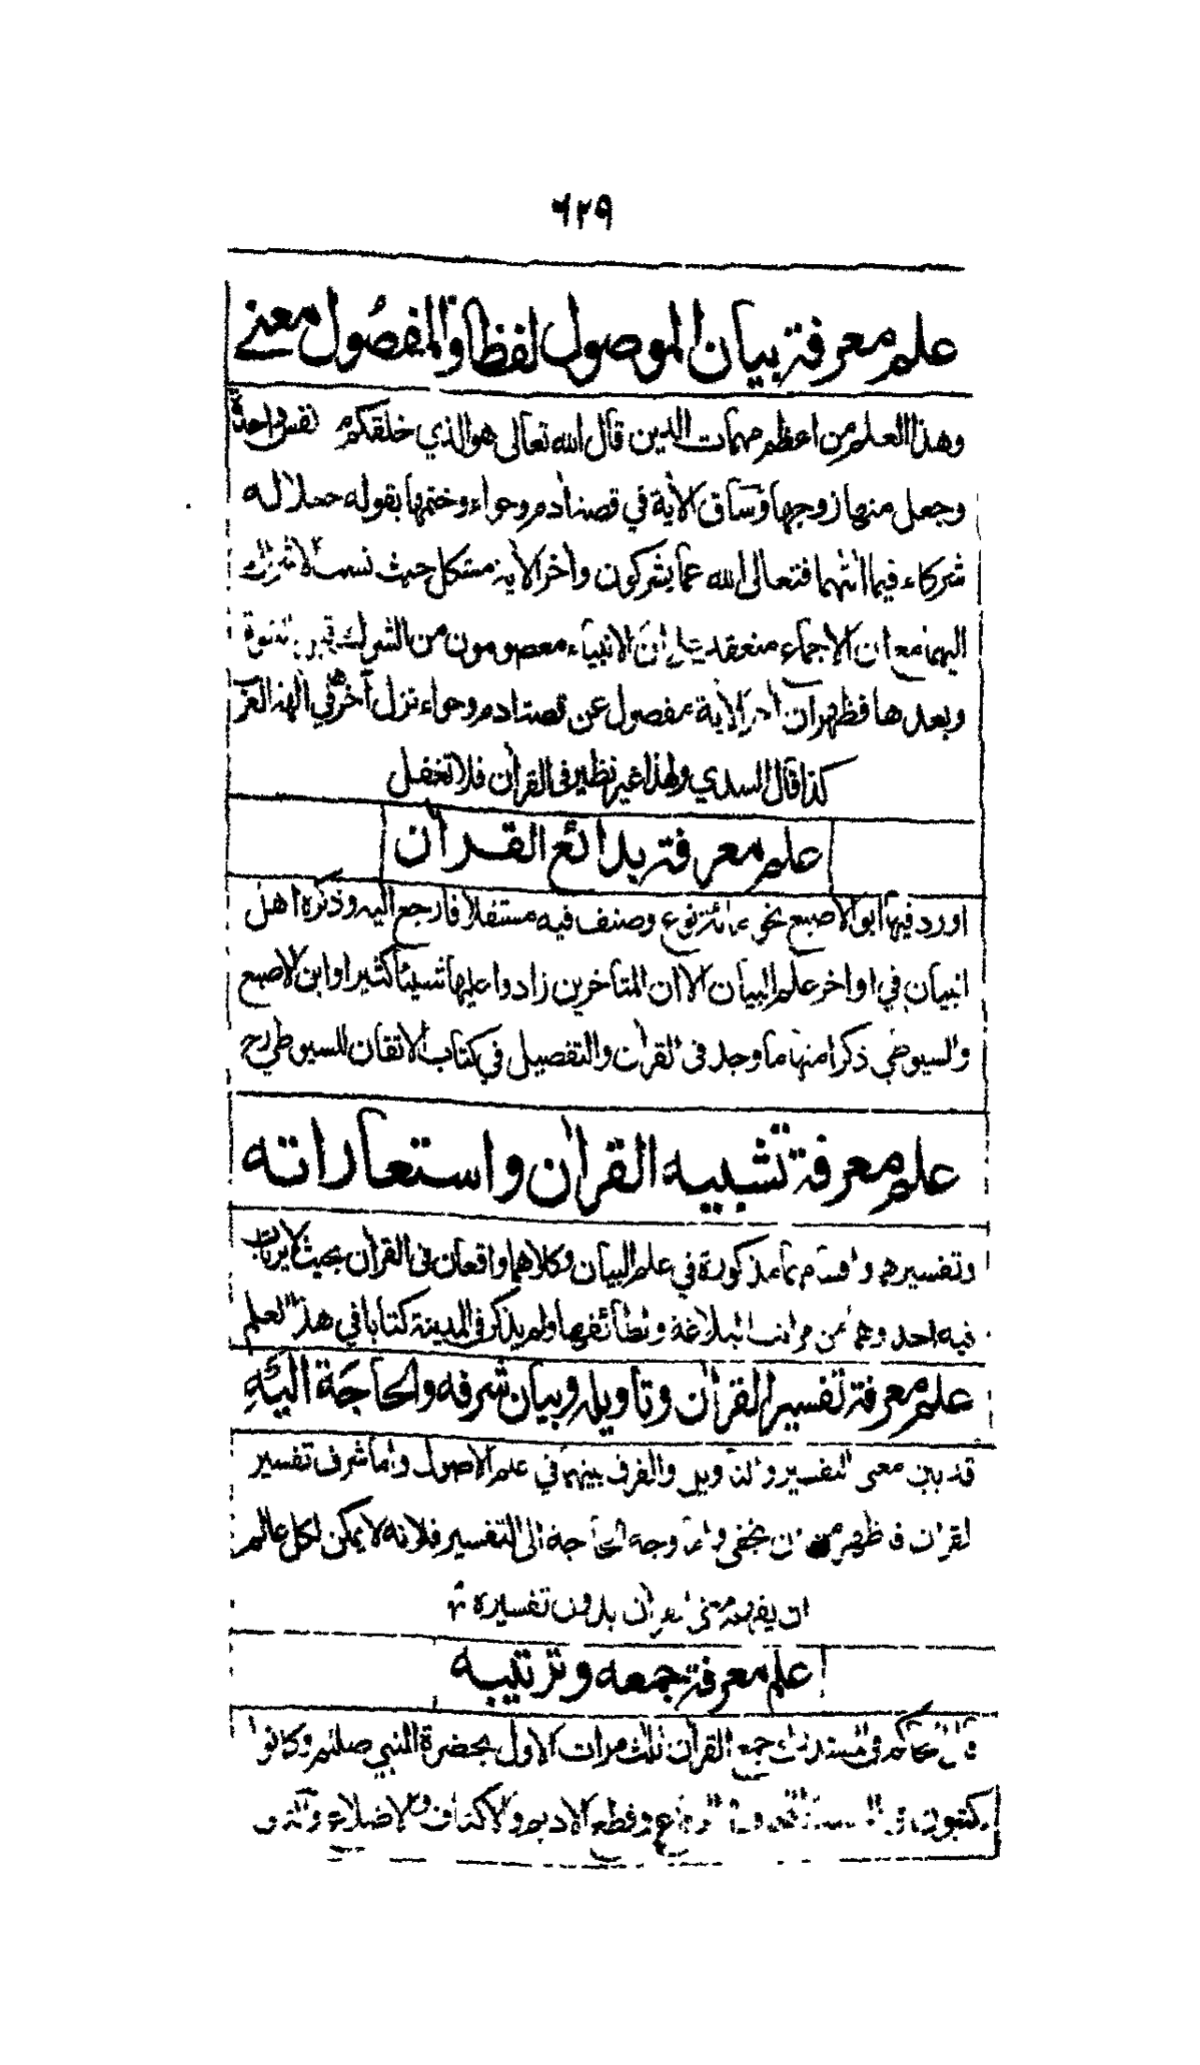 ٦٢٩
علم معرفة بيان الموصول لفظا والمفصول معنے
وهذا العلم من اعظم مهمات الدين قال الله تعالى هو الذي خلقكم نفس واحدة
وجعل منها زوجها وساق الاية في قصة ادم وحواء وختمها بقوله جعلا له
شركاء فيما اتٰهما فتعالى الله عما يشركون واخر الاية مشكل حيث نسب الاشراك
اليهما مع ان الاجماع منعقد على ان الانبياء معصومون من الشرك قبل النبوة
وبعدها فظهر ان اخر الاية مفصول عن قصة ادم وحواء نزل آخره في الهة العز
كذا قال السدي ولهذا غير نظير فى القراٰن فلا تغفل
علم معرفة بدائع القراٰن
اورد فيها ابو الاصبع نحو مائة نوع وصنف فيه مستقلا فارجع اليه وذكره اهل
البيان في اواخر علم البيان الا ان المتاخرين زادوا عليها شيئا كثيرا وابن الاصبع
والسيوطي ذكرا منها ما وجد فى القراٰن والتفصيل في كتاب الاتقان للسيوطي رح
علم معرفة تشبيه القراٰن واستعاراته
وتفسيرهم واقسامهما مذكورة في علم البيان وكلاهما واقعان فى القراٰن بحيث لا يرتاب
فيه احد وهما من مراتب البلاغة ولطائفها ولم يذكر فى المدينة كتابا في هذا العلم
علم معرفة تفسير القراٰن وتاويله وبيان شرفه والحاجة اليه
قد بين معنى التفسير والتاويل والفرق بينهما في علم الاصول واما شرف تفسير
القراٰن فاظهر من ان يخفى واما وجه الحاجة الى التفسير فلانه لا يمكن لكل عالم
ان يفهم معنى القراٰن بدون تفسيره
علم معرفة جمعه وترتيبه
قال الحاكم فى المستدرك جمع القراٰن ثلث مرات الاول بحضرة النبي صلعم وكانوا
يكتبون فى الرقاع وقطع الاديم والاكتاف والاضلاع